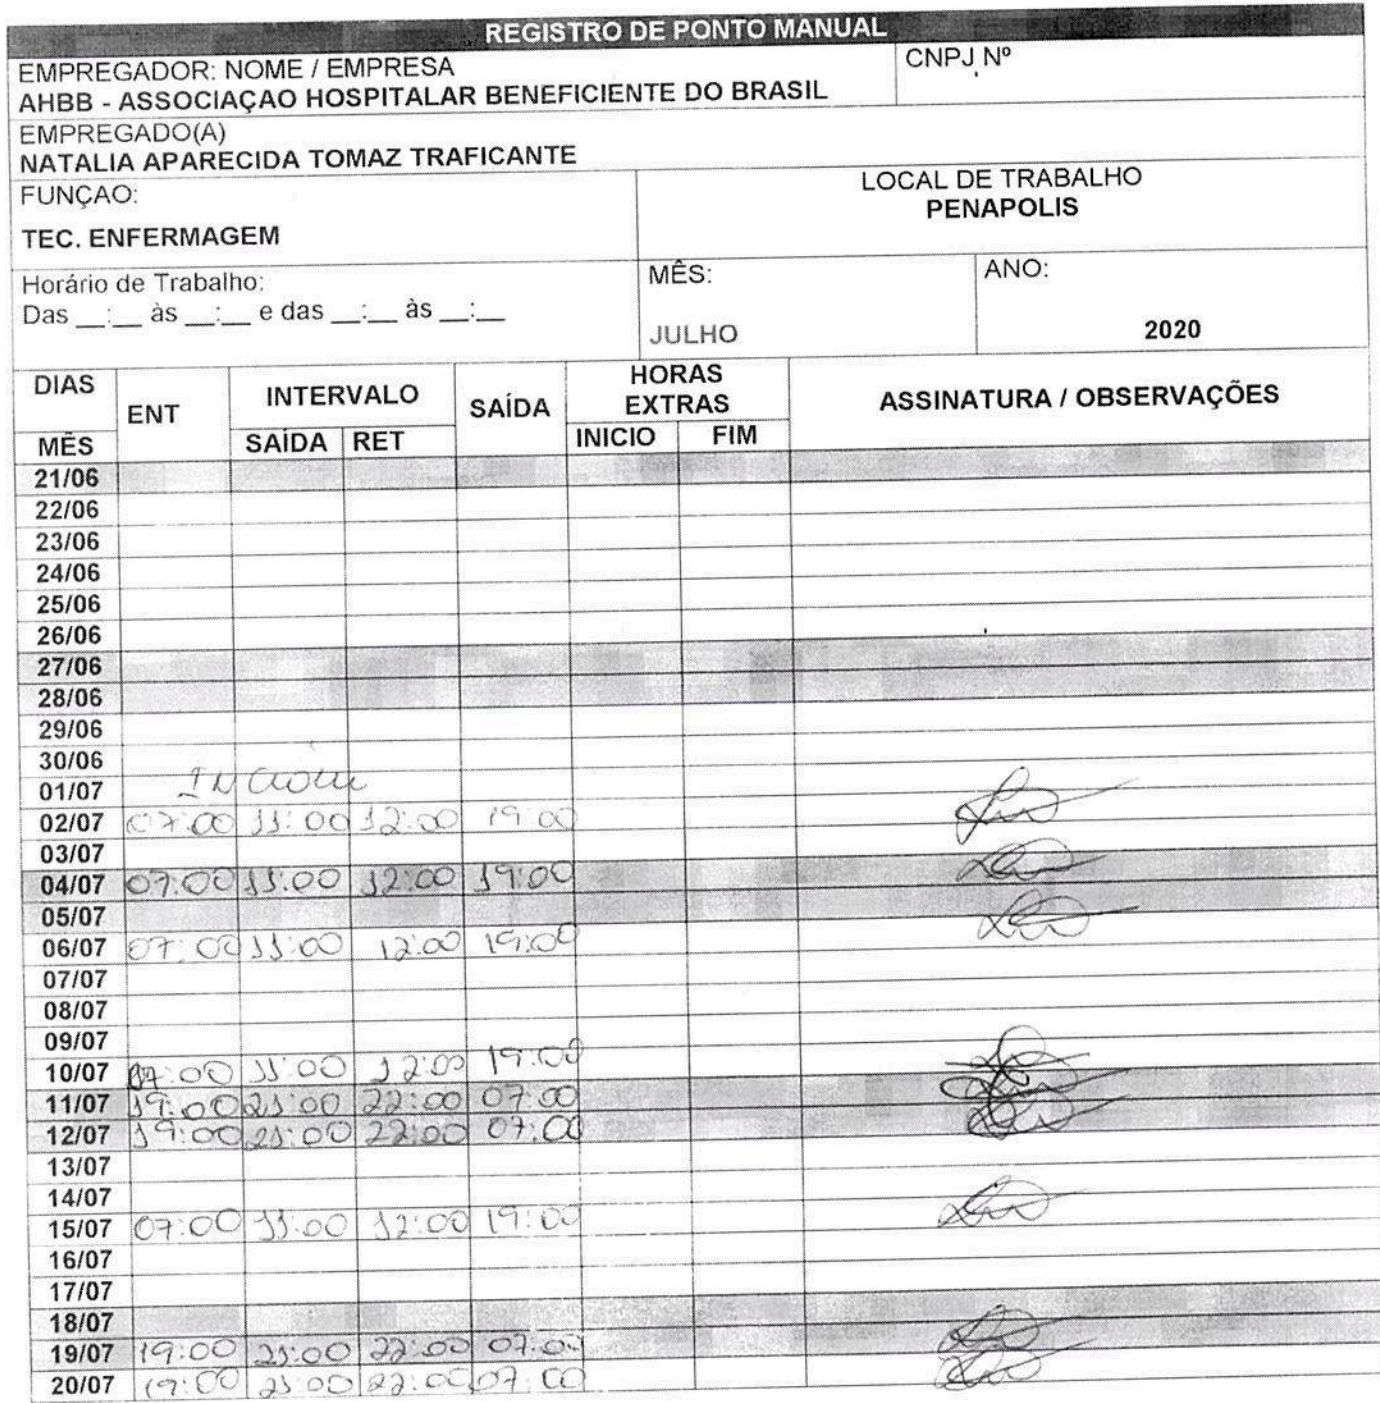 REGISTRO DE PONTO MANUAL
EMPREGADOR: NOME / EMPRESA
CNPJ Nº
AHBB - ASSOCIAÇAO HOSPITALAR BENEFICIENTE DO BRASIL
EMPREGADO(A)
NATALIA APARECIDA TOMAZ TRAFICANTE
FUNÇAO:
TEC. ENFERMAGEM
LOCAL DE TRABALHO
PENAPOLIS
Horário de Trabalho:
Das __:__ às __:__ e das __:__ às __:__
MÊS:
JULHO
ANO:
2020
DIAS MÊS ENT INTERVALO SAÍDA HORAS EXTRAS ASSINATURA / OBSERVAÇÕES
SAÍDA RET INICIO FIM
21/06
22/06
23/06
24/06
25/06
26/06
27/06
28/06
29/06
30/06
01/07
02/07 07:00 11:00 12:00 19:00
03/07
04/07 07:00 11:00 12:00 19:00
05/07
06/07 07:00 11:00 12:00 19:00
07/07
08/07
09/07
10/07 07:00 11:00 12:00 19:00
11/07 19:00 21:00 22:00 07:00
12/07 19:00 21:00 22:00 07:00
13/07
14/07
15/07 07:00 11:00 12:00 19:00
16/07
17/07
18/07
19/07 19:00 21:00 22:00 07:00
20/07 19:00 21:00 22:00 07:00